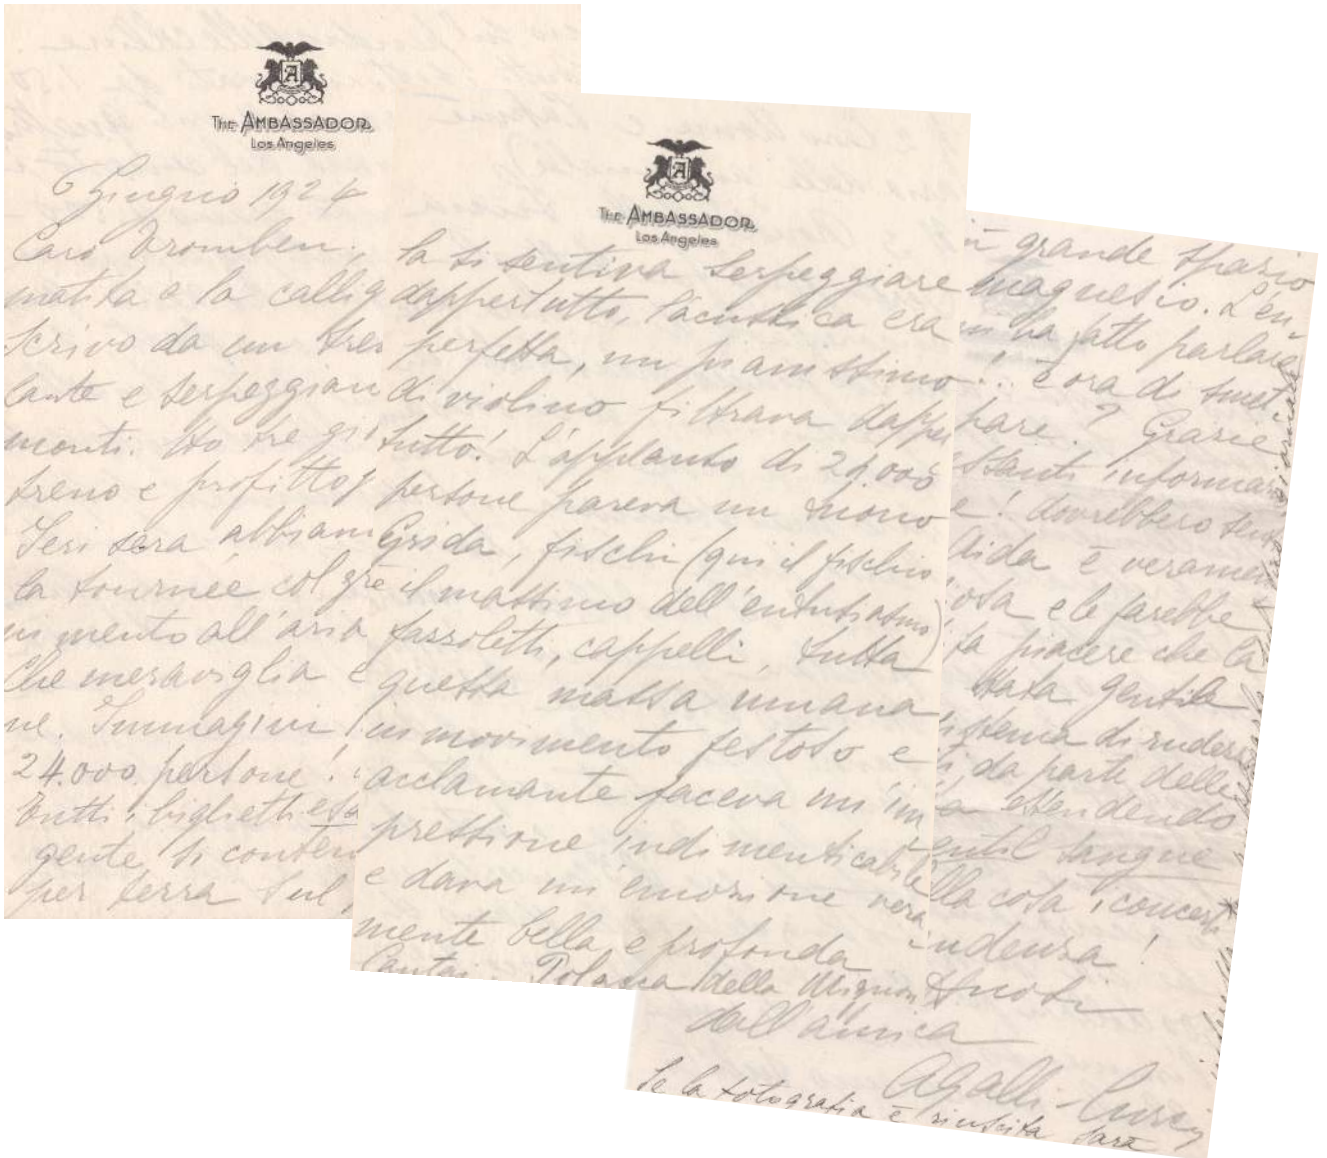 A
The AMBASSADOR
Los Angeles
6 Giugno 1924
Caro Tromben,
matita e la callig
scrivo da un tre
lante e serpeggian
monti. Ho tre gi
treno e profitto
Ieri sera abbiam
la tournée col gre
ni mento all'aria
Che meraviglia e
ne. Immagini
24.000 persone!
Tutti i biglietti esa
gente si conten
per terra sul
A
The AMBASSADOR
Los Angeles
la si sentiva serpeggiare
dappertutto, l'acustica era
perfetta, un pianissimo
di violino filtrava dapper
tutto! L'applauso di 24.000
persone pareva un tuono
Grida, fischi (qui il fischio
è il massimo dell'entusiasmo)
fazzoletti, cappelli, tutta
questa massa umana
in movimento festoso e
acclamante faceva un'im
pressione indimenticabile
e dava un'emozione vera
mente bella e profonda
Cantai Polacca della Mignon
grande spazio
magnesio. L'en
ha fatto parlare
è ora di smet
pare? Grazie
stanti informaz
e! dovrebbero
Aida è veramen
osa e le farebbe
ta piacere che la
stata gentile
istema di rudezze
da parte delle
va estendendo
entil sangue
lla cosa i concerti
ndenza!
saluti
dall'amica
AGalli-Curci
Se la fotografia è riuscita sarà